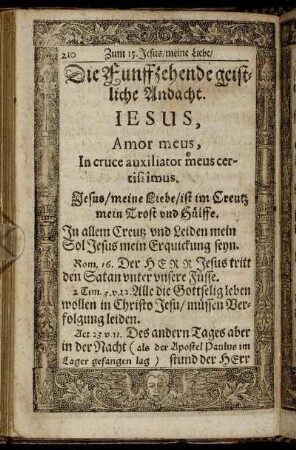 210 Zum 15. Jesus/meine Liebe/
Die Funffzehende geist-
liche Andacht.
IESUS,
Amor meus,
In cruce auxiliator meus cer-
tissimus.
Jesus/meine Liebe/ist im Creutz
mein Trost vnd Hülffe.
In allem Creutz vnd Leiden mein
Sol Jesus mein Erquickung seyn.
Rom. 16. Der HERR Jesus tritt
den Satan vnter vnsere Füsse.
2 Tim. 3. v. 12. Alle die Gottselig leben
wollen in Christo Jesu/müssen Ver-
folgung leiden.
Act 23 v. 11. Des andern Tages aber
in der Nacht (als der Apostel Paulus im
Lager gefangen lag) stund der HErr